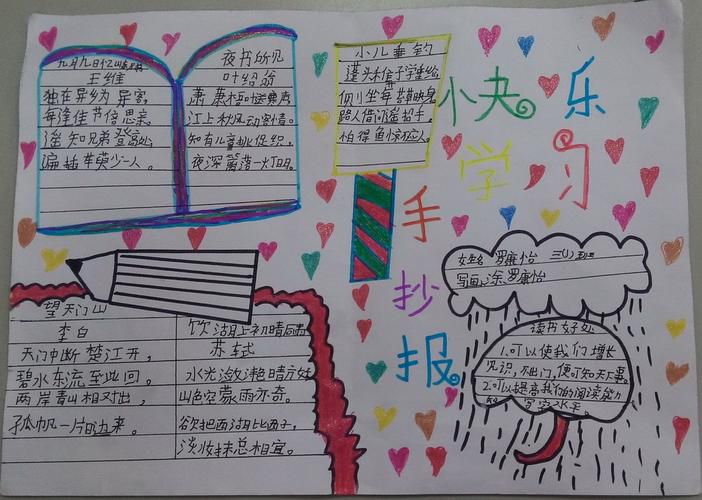 九月九日忆山东兄弟
王维
独在异乡为异客,
每逢佳节倍思亲
遥知兄弟登高处
遍插茱萸少一人。
夜书所见
叶绍翁
萧萧梧叶送寒声
江上秋风动客情。
知有儿童挑促织,
夜深篱落一灯明。
小儿垂钓
蓬头稚子学垂纶
侧坐莓苔草映身
路人借问遥招手,
怕得鱼惊不应人。
快乐
学习
手
抄
报
小
望天门山
李白
天门中断楚江开,
碧水东流至此回。
两岸青山相对出,
孤帆一片日边来。
饮湖上初晴后雨
苏轼
水光潋滟晴方好
山色空蒙雨亦奇。
欲把西湖比西子,
淡妆抹总相宜。
姓名 罗雅怡 三(1)班
写画涂罗雅怡
读书好处
1.可以使我们增长
见识,不出门,便可知天下事。
2.可以提高我们的阅读能力
和写字水平